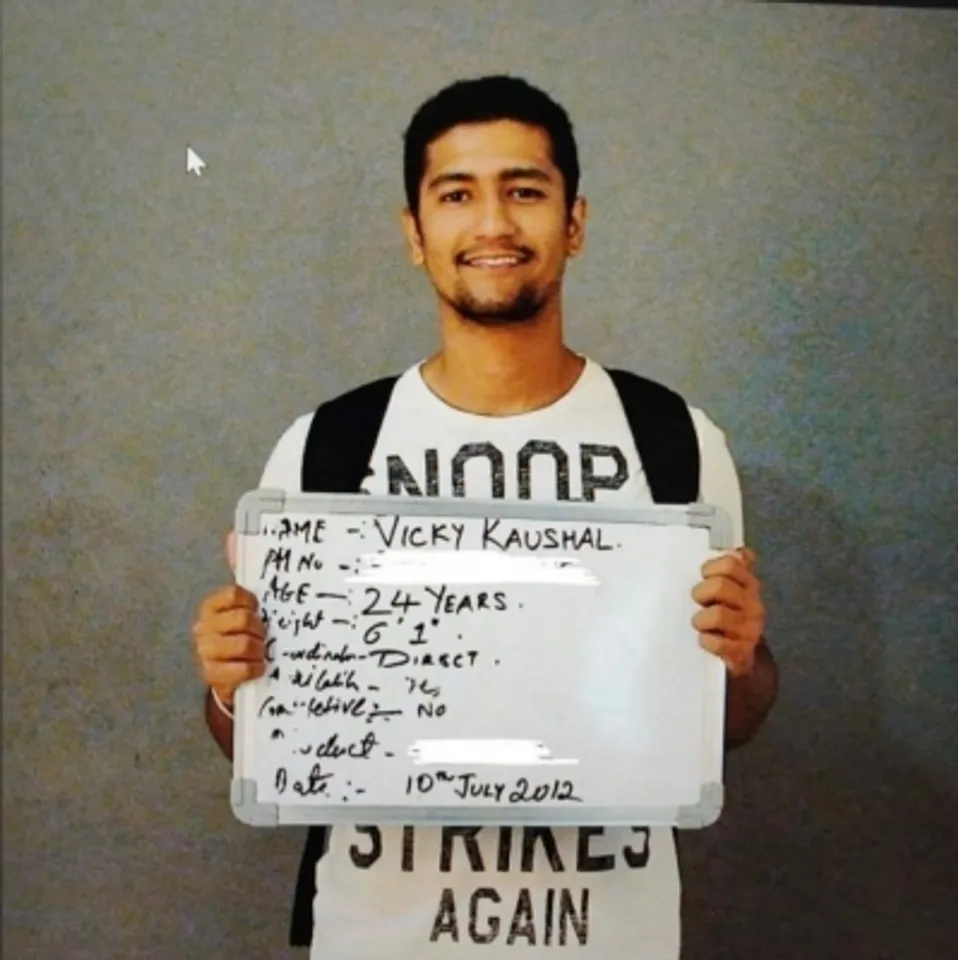 SNOOP
NAME -: VICKY KAUSHAL.
PH No -:
AGE -: 24 YEARS.
Height -: 6' 1".
Co-ordinator - DIRECT.
Availability - Yes
Competetive :- NO
Product -
Date :- 10TH JULY 2012
STRIKES
AGAIN